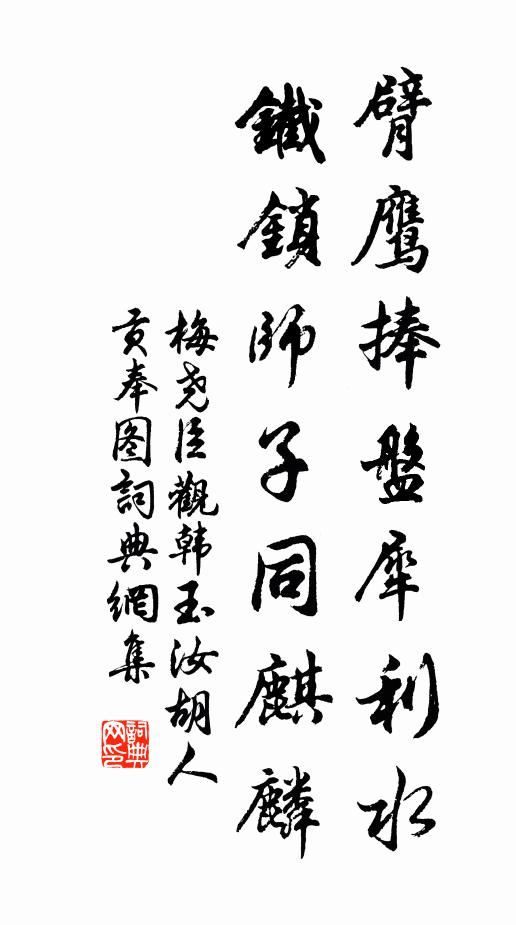 臂鹰捧盤犀利水
鐵鎖師子同麒麟
梅尧臣觀韩玉汝胡人
贡奉图詞典網集
詞典網印